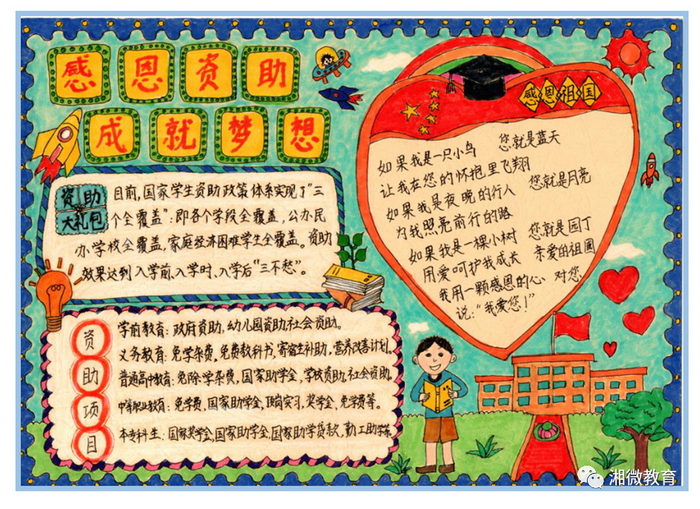 感恩资助
成就梦想
资助
大礼包
目前,国家学生资助政策体系实现了“三
个全覆盖”:即各个学段全覆盖,公办民
办学校全覆盖,家庭经济困难学生全覆盖。资助
效果达到入学前,入学时,入学后“三不愁”。
资助项目
学前教育:政府资助,幼儿园资助,社会资助。
义务教育:免学杂费,免费教科书,寄宿生补助,营养改善计划。
普通高中教育:免除学杂费,国家助学金,学校资助,社会资助。
中等职业教育:免学费,国家助学金,顶岗实习,奖学金,免学费等。
本专科生:国家奖学金,国家助学金,国家助学贷款,勤工助学
感恩祖国
如果我是一只小鸟 您就是蓝天
让我在您的怀抱里飞翔
如果我是夜晚的行人 您就是月亮
为我照亮前行的路
如果我是一棵小树 您就是园丁
用爱呵护我成长 亲爱的祖国
我用一颗感恩的心 对您
说:“我爱您!”
湘微教育